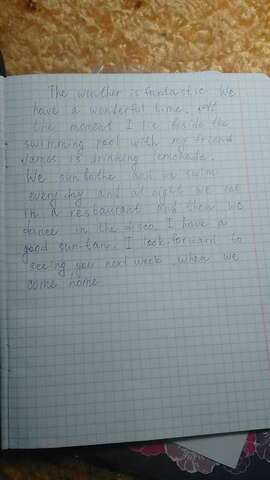 The weather is fantastic. We
have a wonderful time. At
the moment I lie beside the
swimming pool with my friend
James is drinking lemonade.
We sunbathe and we swim
every day and at night we eat
in a restaurant and then we
dance in the disco. I have a
good sun-tan. I look forward to
seeing you next week when we
come home